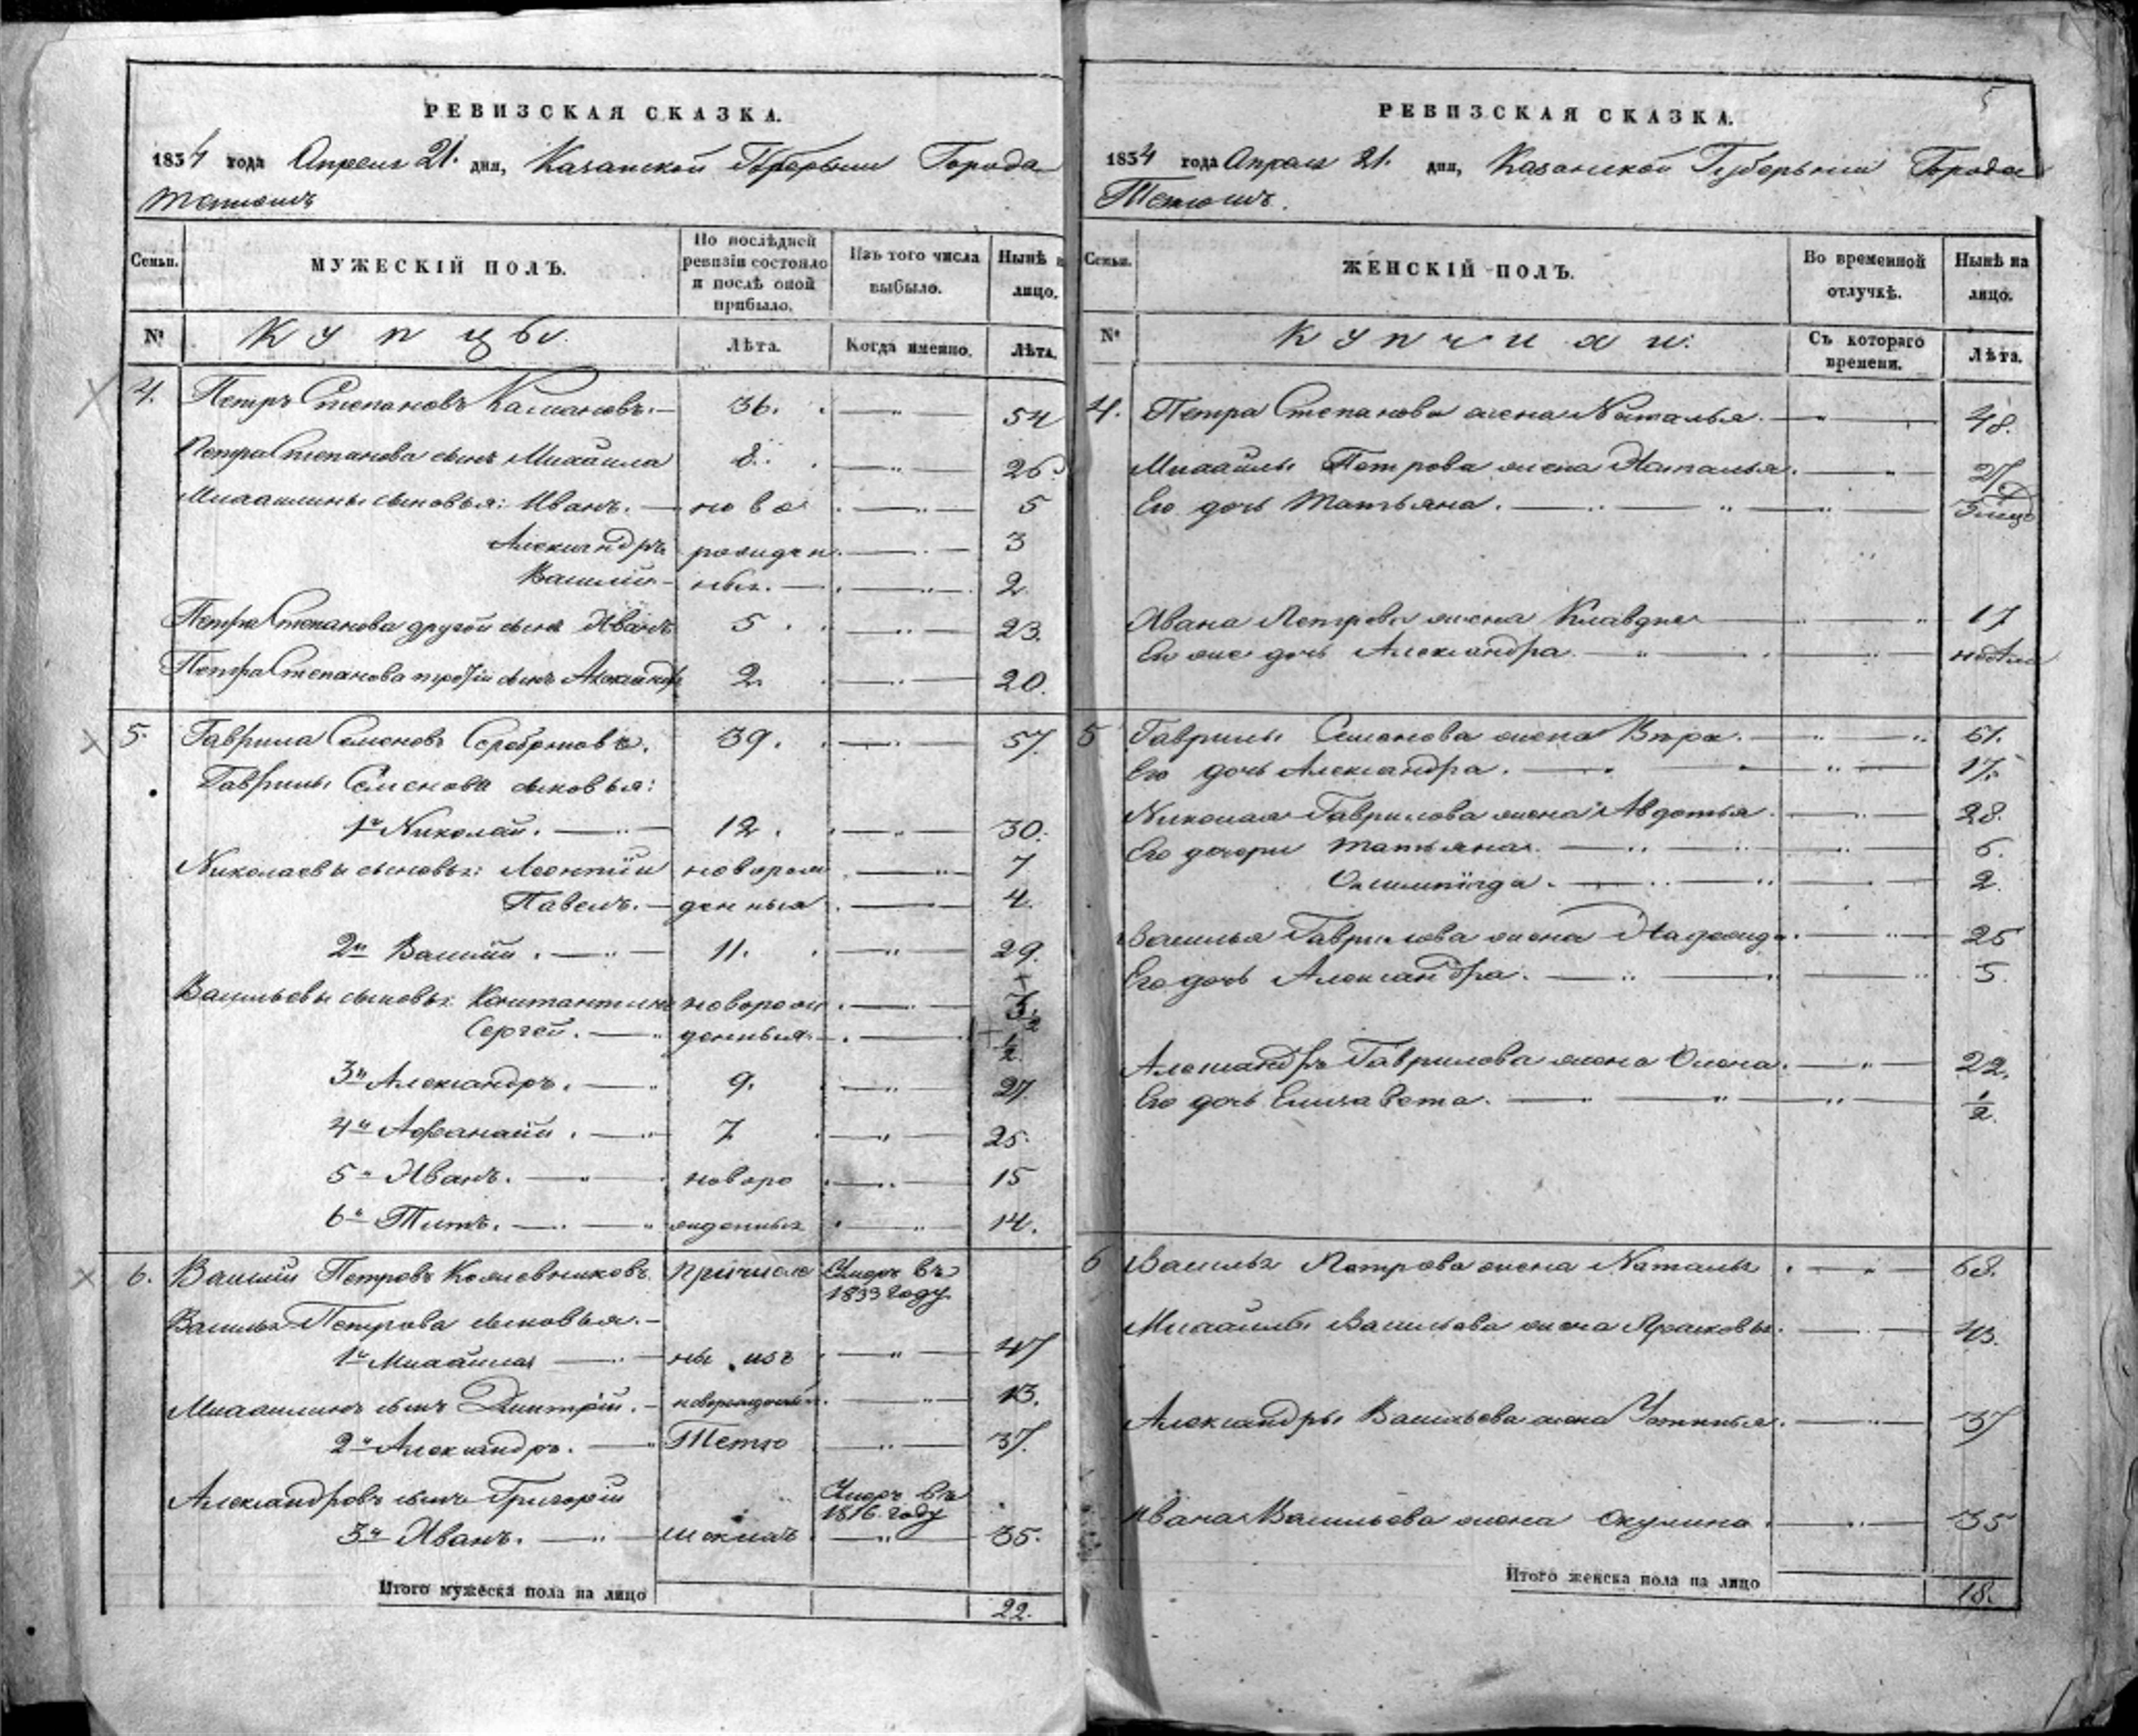 РЕВИЗСКАЯ СКАЗКА.
1834 года Апреля 21. дня, Казанской Губернии Города
Тетюшъ
Семьи.
МУЖЕСКІЙ ПОЛЪ.
По послѣдней ревизіи состояло и послѣ оной прибыло.
Изъ того числа выбыло.
Нынѣ на лицо.
№
Купцы.
Лѣта.
Когда именно.
Лѣта.
4. Петръ Степановъ 36. 54
Петра Степанова сынъ Михаила 8. 26.
Михаилины сыновья: Иванъ. ново 5
Александръ рожден 3
Василій ныя. 2
Петра Степанова другой сынъ Иванъ 5 23.
Петра Степанова третій сынъ Александръ 2. 20.
5. Гаврила Семеновъ Серебряковъ. 39. 57.
Гаврилы Семенова сыновья:
1й Николай. 12. 30.
Николаевы сыновья: Леонтій новорож 7
Павелъ. денныя 4.
2й Василій. 11. 29.
Васильевы сыновья: Константинъ новорож
Сергей. денныя 1/2
3й Александръ. 9. 27.
4й Афанасій. 7 25.
5й Иванъ. новоро 15
6й Титъ. жденныя 14.
6. Василій Петровъ Кожевниковъ. причисле Умеръ въ 1833 году.
Василья Петрова сыновья.
1й Михайла ны изъ 47
Михаилинъ сынъ Дмитрій. новорожденный 13.
2й Александръ. Тетю 37.
Александровъ сынъ Григорій Умеръ въ 1816. году
3й Иванъ. 35.
Итого мужеска пола на лицо 22.
5
РЕВИЗСКАЯ СКАЗКА.
1834 года Апреля 21. дня, Казанской Губерніи Города
Тетюшъ.
Семьи.
ЖЕНСКІЙ ПОЛЪ.
Во временной отлучкѣ.
Нынѣ на лицо.
№
Купчихи.
Съ котораго времени.
Лѣта.
4. Петра Степанова жена Наталья. 48.
Михайлы Петрова жена Наталья. 27
Его дочь Татьяна.
Ивана Петрова жена Клавдия 17
Ея же дочь Александра.
5 Гаврилы Семенова жена Вѣра. 51.
Его дочь Александра. 17.
Николая Гаврилова жена Авдотья. 28.
Его дочери Татьяна. 6.
Олимпіяда. 2.
Василья Гаврилова жена Надежда. 25
Его дочь Александра. 5.
Александръ Гаврилова жена Олена. 22.
Его дочь Елизавета. 1/2.
6 Василья Петрова жена Наталья 68.
Михайлы Васильева жена Прасковья. 43.
Александры Васильева жена 37
Ивана Васильева жена Окулина. 35
Итого женска пола на лицо 18.